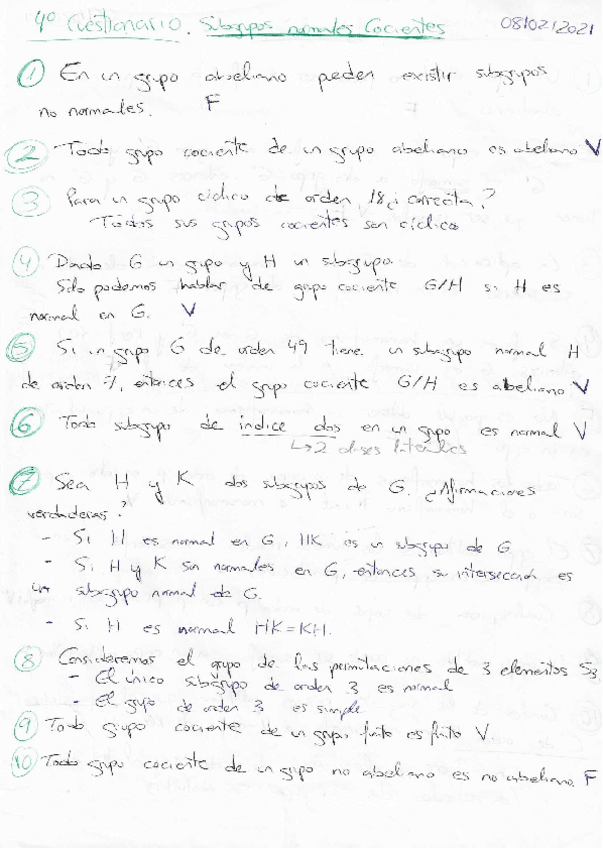 4º Cuestionario. Subgrupos normales Cocientes 08/02/2021
① En un grupo abeliano pueden existir subgrupos
no normales. F
② Todo grupo cociente de un grupo abeliano es abeliano V
③ Para un grupo cíclico de orden 18 ¿correcta?
Todos sus grupos cocientes son cíclicos
④ Dado G un grupo y H un subgrupo.
Solo podemos hablar de grupo cociente G/H si H es
normal en G. V
⑤ Si un grupo G de orden 49 tiene un subgrupo normal H
de orden 7, entonces el grupo cociente G/H es abeliano V
⑥ Todo subgrupo de índice dos en un grupo es normal V
↳ 2 clases laterales
⑦ Sea H y K dos subgrupos de G. ¿Afirmaciones
verdaderas?
- Si H es normal en G, HK es un subgrupo de G
- Si H y K son normales en G, entonces su intersección es
un subgrupo normal de G.
- Si H es normal HK=KH.
⑧ Consideremos el grupo de las permutaciones de 3 elementos S3
- El único subgrupo de orden 3 es normal
- El grupo de orden 3 es simple
⑨ Todo grupo cociente de un grupo finito es finito V
⑩ Todo grupo cociente de un grupo no abeliano es no abeliano. F